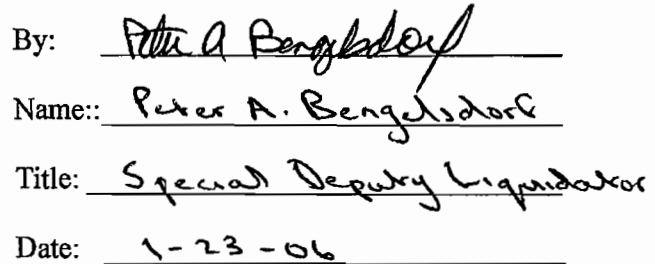 By: Peter A Bengelsdorf
Name:: Peter A. Bengelsdorf
Title: Special Deputy Liquidator
Date: 1-23-06